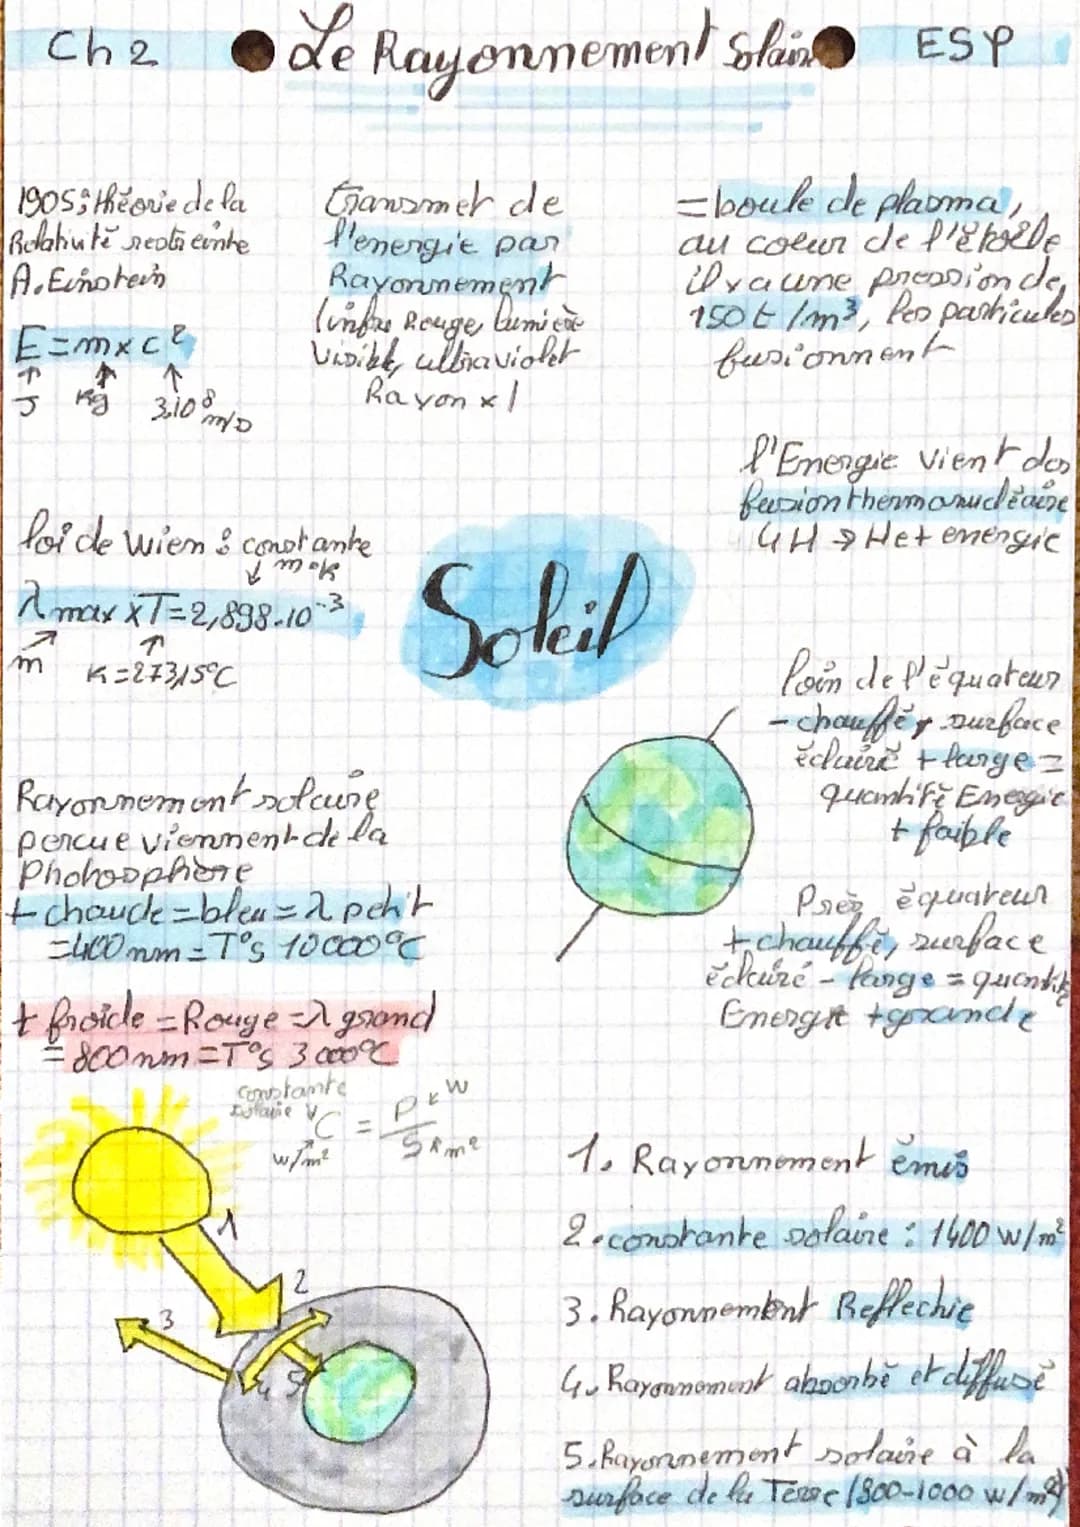 Ch 2
Le Rayonnement Solaire
ESP
1905 : théorie de la
Relativité restreinte
A. Einstein
E = m x c²
J
Kg
3.10⁸ m/s
transmet de
l'energie par
Rayonnement
(infra Rouge, lumière
visible, ultraviolet
Rayon x)
= boule de plasma,
au coeur de l'étoile
il y a une pression de
150 t / m³, les particules
fusionnent
l'Energie vient des
fusion thermonucléaire
4H → He + energie
loi de Wien : constante
m.k
λ max x T = 2,898.10⁻³
m
K = 273,15°C
Soleil
loin de l'équateur
- chauffé, surface
éclairé + large =
quantité Energie
+ faible
Près équateur
+ chauffé, surface
éclairé - large = quantité
Energie + grande
Rayonnement solaire
percue viennent de la
Photosphère
+ chaude = bleu = λ petit
= 400 nm = T°s 10 000°C
+ froide = Rouge = λ grand
= 800 nm = T°s 3 000°C
constante
solaire
C = P / S
W
w/m²
m²
1
2
3
4
5
1. Rayonnement émis
2. constante solaire : 1400 w/m²
3. Rayonnement Reflechie
4. Rayonnement absorbé et diffusé
5. Rayonnement solaire à la
surface de la Terre (800-1000 w/m²)